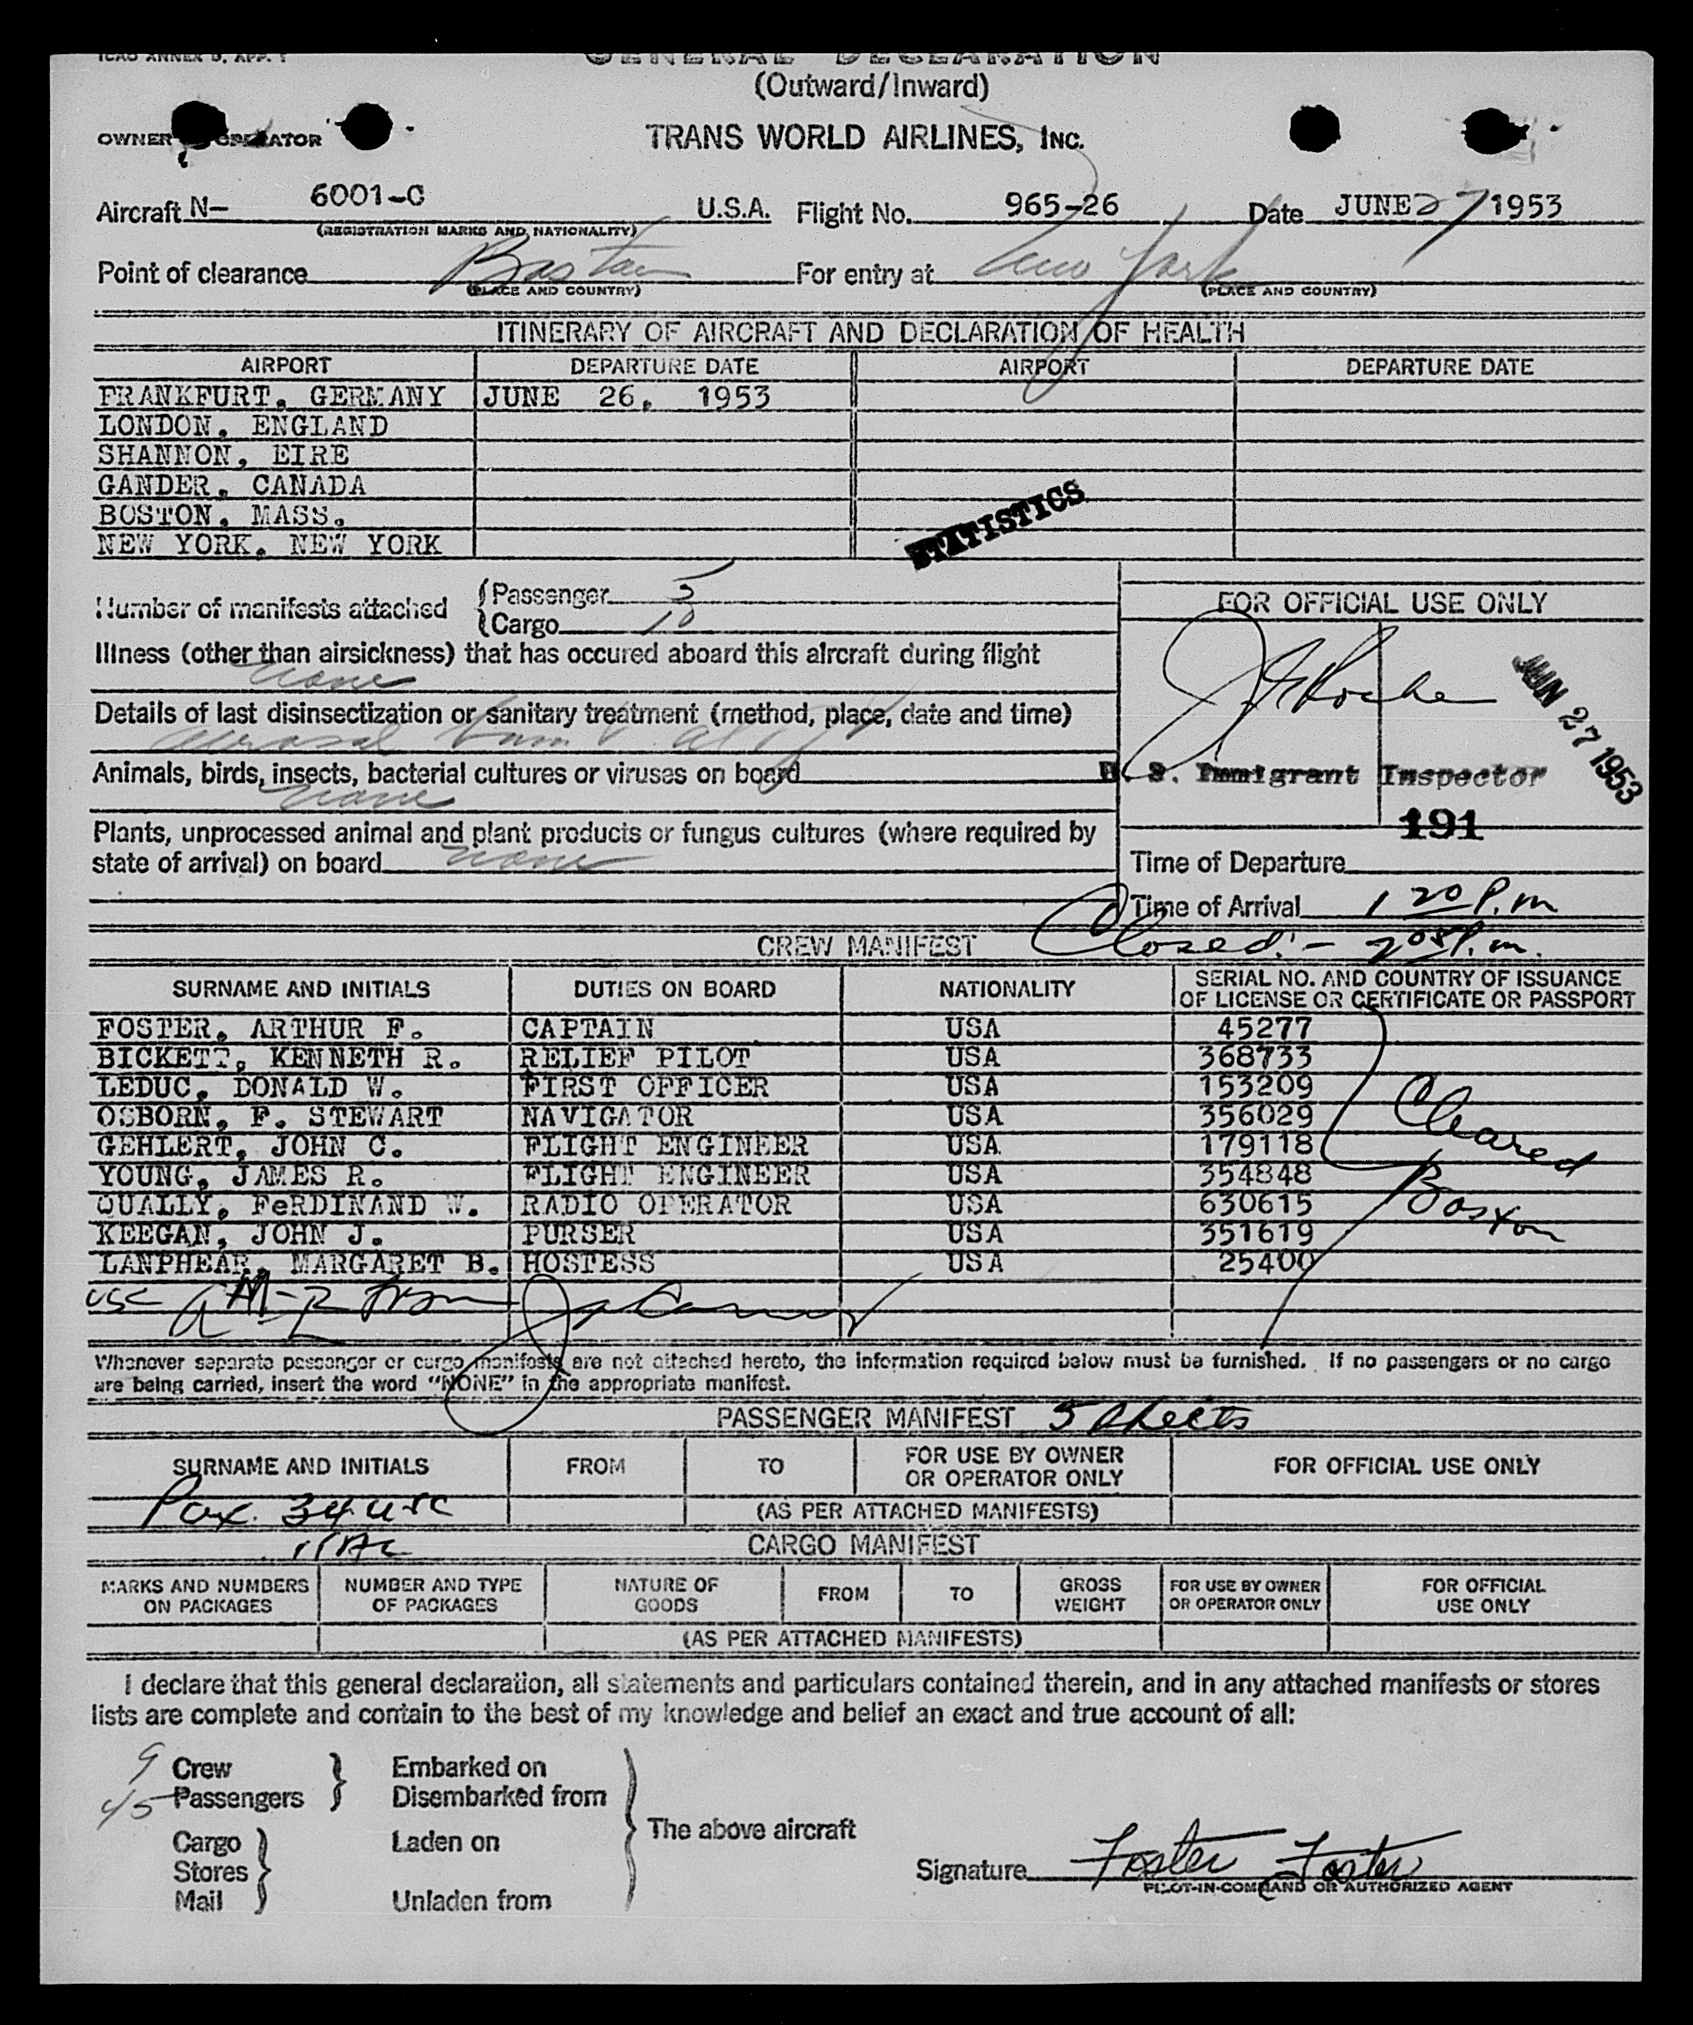 ICAO ANNEX 9, APP. 1
GENERAL DECLARATION
(Outward/Inward)
OWNER OPERATOR TRANS WORLD AIRLINES, INC.
Aircraft N- 6001-C U.S.A. Flight No. 965-26 Date JUNE 27 1953
(REGISTRATION MARKS AND NATIONALITY)
Point of clearance Boston For entry at New York
(PLACE AND COUNTRY) (PLACE AND COUNTRY)
ITINERARY OF AIRCRAFT AND DECLARATION OF HEALTH
AIRPORT DEPARTURE DATE AIRPORT DEPARTURE DATE
FRANKFURT, GERMANY JUNE 26, 1953
LONDON, ENGLAND
SHANNON, EIRE
GANDER, CANADA
BOSTON, MASS.
NEW YORK, NEW YORK
STATISTICS
Number of manifests attached
Passenger 5
Cargo 10
FOR OFFICIAL USE ONLY
Illness (other than airsickness) that has occured aboard this aircraft during flight
none
JUN 27 1953
Details of last disinsectization or sanitary treatment (method, place, date and time)
aerosol bomb
Animals, birds, insects, bacterial cultures or viruses on board
none
U. S. Immigrant Inspector
191
Plants, unprocessed animal and plant products or fungus cultures (where required by
state of arrival) on board none
Time of Departure
Time of Arrival 1 20 P.m
Closed:- 2 05 P.m.
CREW MANIFEST
SURNAME AND INITIALS DUTIES ON BOARD NATIONALITY SERIAL NO. AND COUNTRY OF ISSUANCE OF LICENSE OR CERTIFICATE OR PASSPORT
FOSTER, ARTHUR F. CAPTAIN USA 45277
BICKETT, KENNETH R. RELIEF PILOT USA 368733
LEDUC, DONALD W. FIRST OFFICER USA 153209
OSBORN, F. STEWART NAVIGATOR USA 356029
GEHLERT, JOHN C. FLIGHT ENGINEER USA 179118
YOUNG, JAMES R. FLIGHT ENGINEER USA 354848
QUALLY, FeRDINAND W. RADIO OPERATOR USA 630615
KEEGAN, JOHN J. PURSER USA 351619
LANPHEAR, MARGARET B. HOSTESS USA 25400
Cleared
Boston
USC
Whenever separate passenger or cargo manifests are not attached hereto, the information required below must be furnished. If no passengers or no cargo
are being carried, insert the word "NONE" in the appropriate manifest.
PASSENGER MANIFEST 5 sheets
SURNAME AND INITIALS FROM TO FOR USE BY OWNER OR OPERATOR ONLY FOR OFFICIAL USE ONLY
Pax. 34 USC (AS PER ATTACHED MANIFESTS)
CARGO MANIFEST
MARKS AND NUMBERS ON PACKAGES NUMBER AND TYPE OF PACKAGES NATURE OF GOODS FROM TO GROSS WEIGHT FOR USE BY OWNER OR OPERATOR ONLY FOR OFFICIAL USE ONLY
(AS PER ATTACHED MANIFESTS)
I declare that this general declaration, all statements and particulars contained therein, and in any attached manifests or stores
lists are complete and contain to the best of my knowledge and belief an exact and true account of all:
9 Crew Embarked on
45 Passengers Disembarked from
The above aircraft
Cargo Laden on
Stores
Mail Unladen from
Signature Foster Foster
PILOT-IN-COMMAND OR AUTHORIZED AGENT